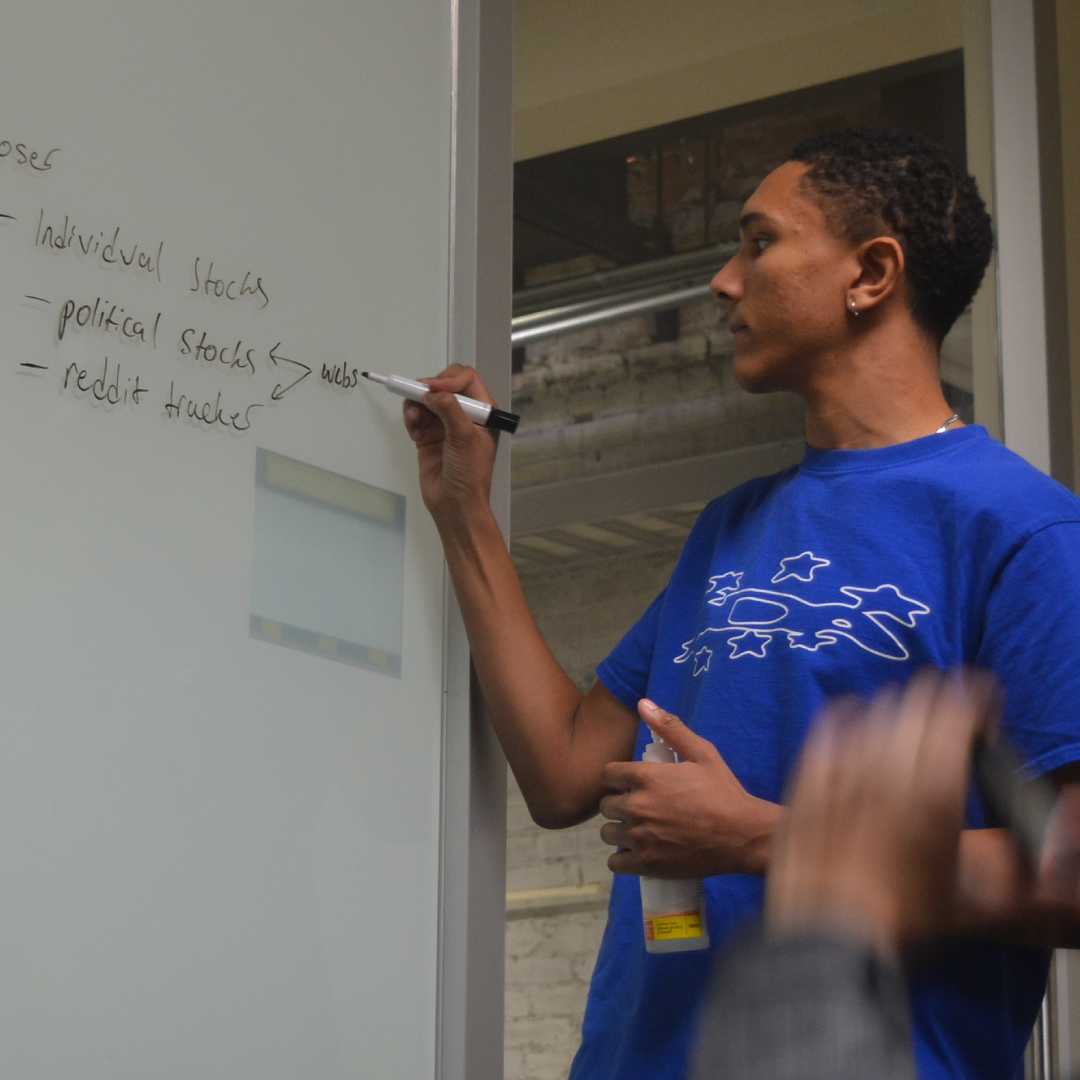 oser
- Individual Stocks
- political Stocks
webs
- reddit tracker